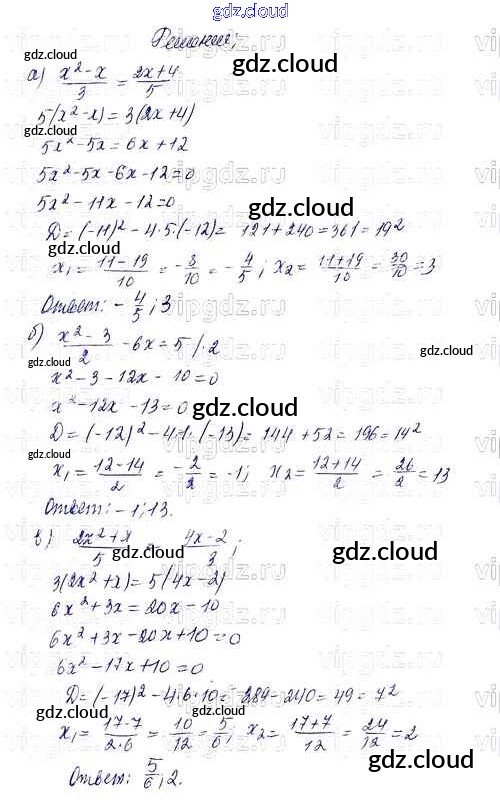 gdz.cloud
Решение;
gdz.cloud
а) (x² - x)/3 = (2x + 4)/5
gdz.cloud
5(x² - x) = 3(2x + 4)
5x² - 5x = 6x + 12
gdz.cloud
5x² - 5x - 6x - 12 = 0
5x² - 11x - 12 = 0
gdz.cloud
D = (-11)² - 4·5·(-12) = 121 + 240 = 361 = 19²
gdz.cloud
x₁ = (11 - 19)/10 = -8/10 = -4/5; x₂ = (11 + 19)/10 = 30/10 = 3
gdz.cloud
Ответ: -4/5; 3
gdz.cloud
б) (x² - 3)/2 - 6x = 5 /·2
gdz.cloud gdz.cloud
x² - 3 - 12x - 10 = 0
x² - 12x - 13 = 0
gdz.cloud
D = (-12)² - 4·1·(-13) = 144 + 52 = 196 = 14²
gdz.cloud
x₁ = (12 - 14)/2 = -2/2 = -1; x₂ = (12 + 14)/2 = 26/2 = 13
gdz.cloud
Ответ: -1; 13.
gdz.cloud
в) (2x² + x)/5 = (4x - 2)/3;
gdz.cloud
3(2x² + x) = 5(4x - 2)
gdz.cloud
6x² + 3x = 20x - 10
6x² + 3x - 20x + 10 = 0
gdz.cloud
6x² - 17x + 10 = 0
D = (-17)² - 4·6·10 = 289 - 240 = 49 = 7²
gdz.cloud gdz.cloud
x₁ = (17 - 7)/(2·6) = 10/12 = 5/6; x₂ = (17 + 7)/12 = 24/12 = 2
gdz.cloud
Ответ: 5/6; 2.
gdz.cloud